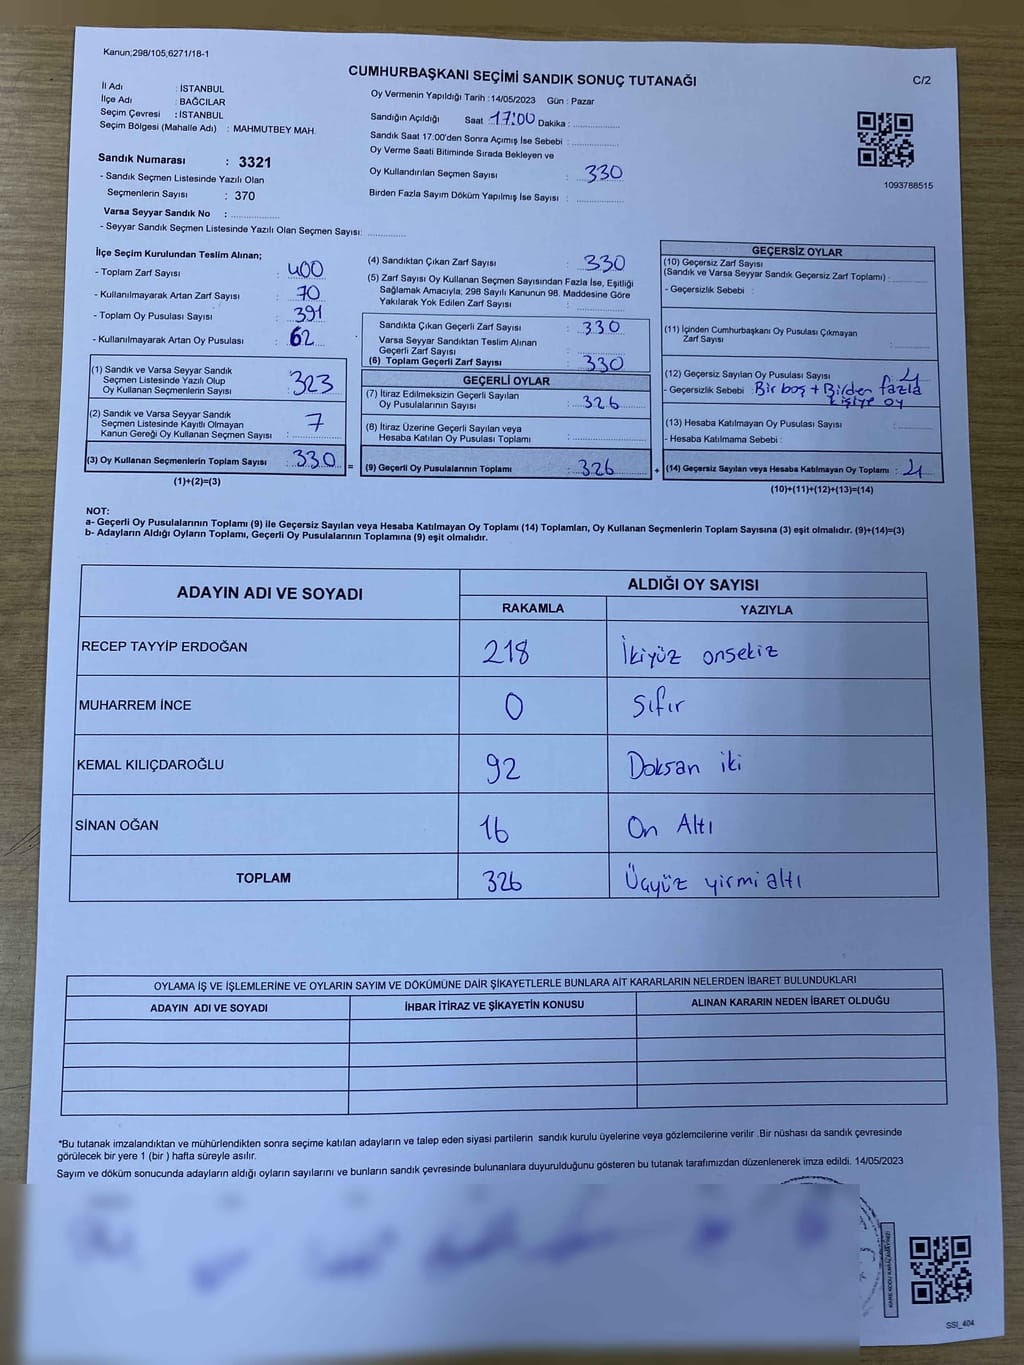 Kanun;298/105;6271/18-1
CUMHURBAŞKANI SEÇİMİ SANDIK SONUÇ TUTANAĞI
C/2
İl Adı : İSTANBUL
İlçe Adı : BAĞCILAR
Seçim Çevresi : İSTANBUL
Seçim Bölgesi (Mahalle Adı) : MAHMUTBEY MAH.
Sandık Numarası : 3321
- Sandık Seçmen Listesinde Yazılı Olan
Seçmenlerin Sayısı : 370
Varsa Seyyar Sandık No : ..............
- Seyyar Sandık Seçmen Listesinde Yazılı Olan Seçmen Sayısı: ............
Oy Vermenin Yapıldığı Tarih : 14/05/2023 Gün : Pazar
Sandığın Açıldığı Saat 17:00 Dakika : ..............
Sandık Saat 17:00'den Sonra Açımış İse Sebebi : ..............
Oy Verme Saati Bitiminde Sırada Bekleyen ve
Oy Kullandırılan Seçmen Sayısı : 330
Birden Fazla Sayım Döküm Yapılmış İse Sayısı : ..............
1093788515
İlçe Seçim Kurulundan Teslim Alınan;
- Toplam Zarf Sayısı : 400
- Kullanılmayarak Artan Zarf Sayısı : 70
- Toplam Oy Pusulası Sayısı : 391
- Kullanılmayarak Artan Oy Pusulası : 62
(1) Sandık ve Varsa Seyyar Sandık
Seçmen Listesinde Yazılı Olup
Oy Kullanan Seçmenlerin Sayısı : 323
(2) Sandık ve Varsa Seyyar Sandık
Seçmen Listesinde Kayıtlı Olmayan
Kanun Gereği Oy Kullanan Seçmen Sayısı : 7
(3) Oy Kullanan Seçmenlerin Toplam Sayısı : 330 =
(1)+(2)=(3)
(4) Sandıktan Çıkan Zarf Sayısı : 330
(5) Zarf Sayısı Oy Kullanan Seçmen Sayısından Fazla İse, Eşitliği
Sağlamak Amacıyla, 298 Sayılı Kanunun 98. Maddesine Göre
Yakılarak Yok Edilen Zarf Sayısı : ..............
Sandıkta Çıkan Geçerli Zarf Sayısı : 330
Varsa Seyyar Sandıktan Teslim Alınan
Geçerli Zarf Sayısı : ..............
(6) Toplam Geçerli Zarf Sayısı : 330
GEÇERLİ OYLAR
(7) İtiraz Edilmeksizin Geçerli Sayılan
Oy Pusulalarının Sayısı : 326
(8) İtiraz Üzerine Geçerli Sayılan veya
Hesaba Katılan Oy Pusulası Toplamı : ..............
(9) Geçerli Oy Pusulalarının Toplamı : 326 +
GEÇERSİZ OYLAR
(10) Geçersiz Zarf Sayısı
(Sandık ve Varsa Seyyar Sandık Geçersiz Zarf Toplamı) : ..........
- Geçersizlik Sebebi :
(11) İçinden Cumhurbaşkanı Oy Pusulası Çıkmayan
Zarf Sayısı : ..........
(12) Geçersiz Sayılan Oy Pusulası Sayısı : 4
- Geçersizlik Sebebi : Bir boş + Birden fazla
kişiye oy
(13) Hesaba Katılmayan Oy Pusulası Sayısı : ..........
- Hesaba Katılmama Sebebi :
(14) Geçersiz Sayılan veya Hesaba Katılmayan Oy Toplamı : 4
(10)+(11)+(12)+(13)=(14)
NOT:
a- Geçerli Oy Pusulalarının Toplamı (9) ile Geçersiz Sayılan veya Hesaba Katılmayan Oy Toplamı (14) Toplamları, Oy Kullanan Seçmenlerin Toplam Sayısına (3) eşit olmalıdır. (9)+(14)=(3)
b- Adayların Aldığı Oyların Toplamı, Geçerli Oy Pusulalarının Toplamına (9) eşit olmalıdır.
ADAYIN ADI VE SOYADI
ALDIĞI OY SAYISI
RAKAMLA YAZIYLA
RECEP TAYYİP ERDOĞAN 218 İkiyüz onsekiz
MUHARREM İNCE 0 Sıfır
KEMAL KILIÇDAROĞLU 92 Doksan iki
SİNAN OĞAN 16 On Altı
TOPLAM 326 Üçyüz yirmi altı
OYLAMA İŞ VE İŞLEMLERİNE VE OYLARIN SAYIM VE DÖKÜMÜNE DAİR ŞİKAYETLERLE BUNLARA AİT KARARLARIN NELERDEN İBARET BULUNDUKLARI
ADAYIN ADI VE SOYADI İHBAR İTİRAZ VE ŞİKAYETİN KONUSU ALINAN KARARIN NEDEN İBARET OLDUĞU
*Bu tutanak imzalandıktan ve mühürlendikten sonra seçime katılan adayların ve talep eden siyasi partilerin sandık kurulu üyelerine veya gözlemcilerine verilir .Bir nüshası da sandık çevresinde
görülecek bir yere 1 (bir ) hafta süreyle asılır.
Sayım ve döküm sonucunda adayların aldığı oyların sayılarını ve bunların sandık çevresinde bulunanlara duyurulduğunu gösteren bu tutanak tarafımızdan düzenlenerek imza edildi. 14/05/2023
KARE KODU KARALAMAYINIZ!
SSI_404